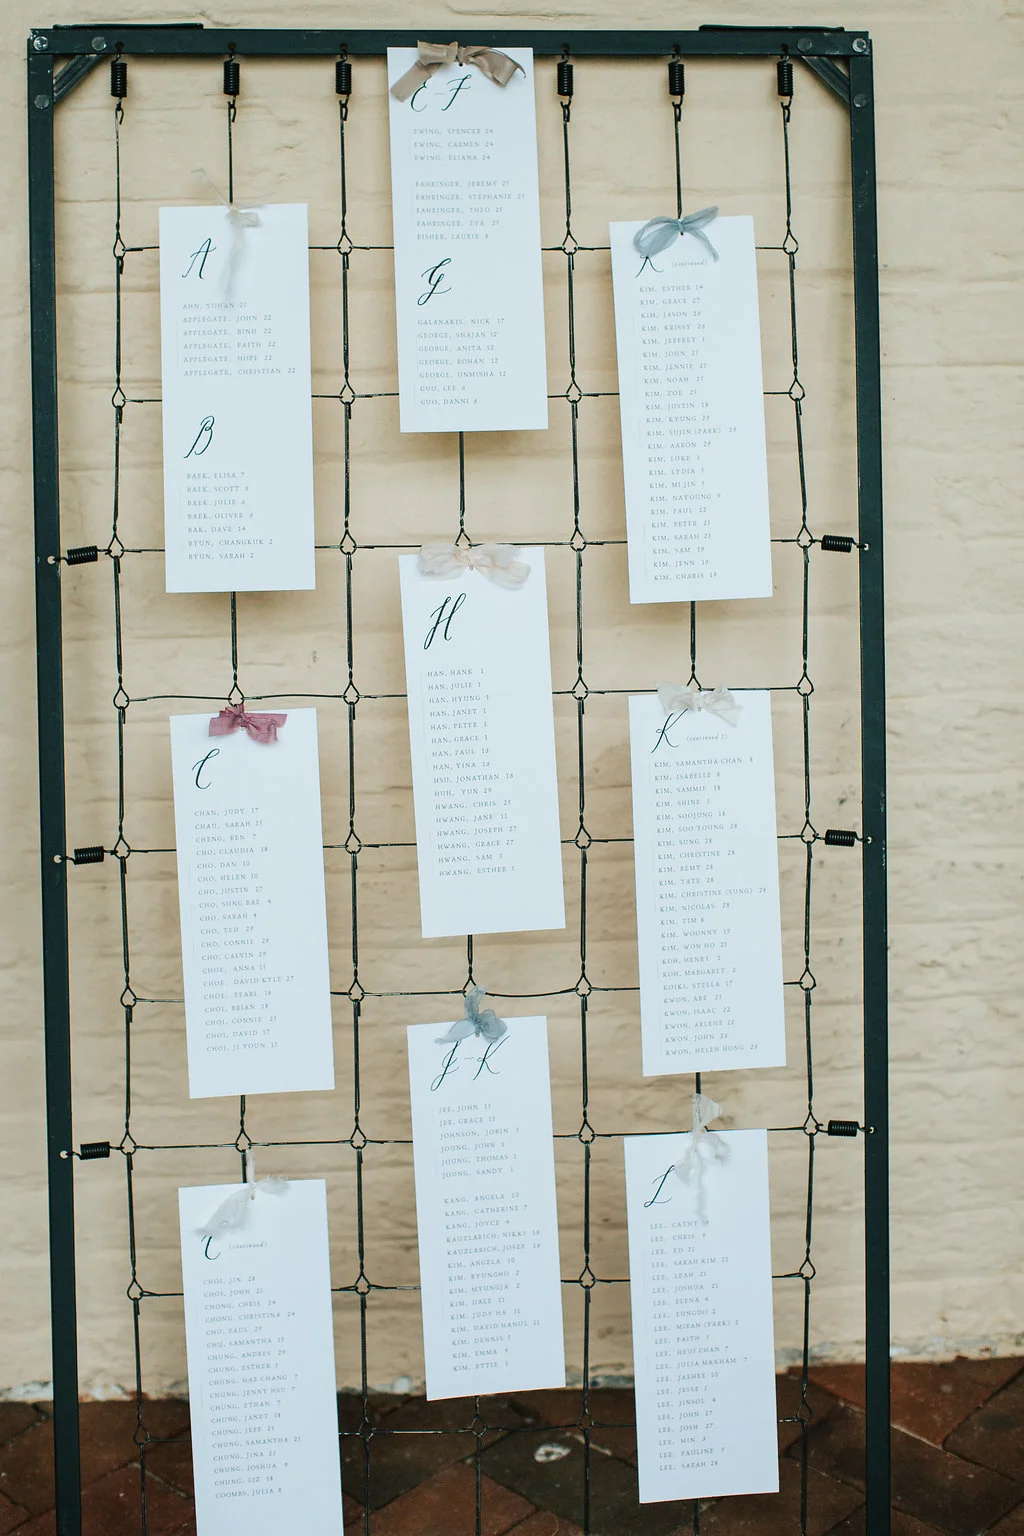 A
AHN, YOHAN 25
APPLEGATE, JOHN 22
APPLEGATE, BINH 22
APPLEGATE, FAITH 22
APPLEGATE, HOPE 22
APPLEGATE, CHRISTIAN 22
B
BAEK, ELISA 7
BAEK, SCOTT 6
BAEK, JULIE 6
BAEK, OLIVER 6
BAK, DAVE 14
BYUN, CHANGKUK 2
BYUN, SARAH 2
C
CHAN, JUDY 17
CHAU, SARAH 17
CHENG, BEN 7
CHO, CLAUDIA 18
CHO, DAN 10
CHO, HELEN 10
CHO, JUSTIN 27
CHO, SUNG BAE 4
CHO, SARAH 4
CHO, TED 29
CHO, CONNIE 29
CHO, CALVIN 29
CHOE, ANNA 15
CHOE, DAVID KYLE 27
CHOE, PEARL 18
CHOI, BRIAN 18
CHOI, CONNIE 25
CHOI, DAVID 17
CHOI, JI YOUN 15
C (continued)
CHOI, JIN 28
CHOI, JOHN 25
CHONG, CHRIS 24
CHONG, CHRISTINA 24
CHO, PAUL 29
CHU, SAMANTHA 15
CHUNG, ANDRES 29
CHUNG, ESTHER 5
CHUNG, HAE CHANG 7
CHUNG, JENNY HSU 7
CHUNG, ETHAN 7
CHUNG, JANET 18
CHUNG, JEFF 25
CHUNG, SAMANTHA 25
CHUNG, JINA 25
CHUNG, JOSHUA 9
CHUNG, LIZ 18
COOMBS, JULIA 8
E-F
EWING, SPENCER 24
EWING, CARMEN 24
EWING, ELIANA 24
FAHRINGER, JEREMY 25
FAHRINGER, STEPHANIE 25
FAHRINGER, THEO 25
FAHRINGER, EVA 25
FISHER, LAURIE 8
G
GALANAKIS, NICK 17
GEORGE, SHAJAN 12
GEORGE, ANITA 12
GEORGE, ROHAN 12
GEORGE, UNMISHA 12
GUO, LEE 6
GUO, DANNI 6
H
HAN, HANK 1
HAN, JULIE 1
HAN, HYUNG 1
HAN, JANET 1
HAN, PETER 1
HAN, GRACE 1
HAN, PAUL 16
HAN, YINA 16
HSU, JONATHAN 16
HUH, YUN 29
HWANG, CHRIS 25
HWANG, JANE 11
HWANG, JOSEPH 27
HWANG, GRACE 27
HWANG, SAM 5
HWANG, ESTHER 5
J-K
JEE, JOHN 15
JEE, GRACE 15
JOHNSON, JOBIN 3
JOUNG, JOHN 1
JOUNG, THOMAS 1
JOUNG, SANDY 1
KANG, ANGELA 10
KANG, CATHERINE 7
KANG, JOYCE 4
KAUZLARICH, NIKKI 16
KAUZLARICH, JOSEF 16
KIM, ANGELA 10
KIM, BYUNGHO 2
KIM, MYUNGJA 2
KIM, DALE 11
KIM, JUDY HA 11
KIM, DAVID HANUL 11
KIM, DENNIS 5
KIM, EMMA 9
KIM, ETTIE 5
K (continued)
KIM, ESTHER 14
KIM, GRACE 27
KIM, JASON 26
KIM, KRISSY 26
KIM, JEFFREY 3
KIM, JOHN 25
KIM, JENNIE 25
KIM, NOAH 25
KIM, ZOE 25
KIM, JUSTIN 18
KIM, KYUNG 29
KIM, SUJIN (PARK) 29
KIM, AARON 29
KIM, LUKE 5
KIM, LYDIA 5
KIM, MI JIN 5
KIM, NAYOUNG 9
KIM, PAUL 22
KIM, PETER 23
KIM, SARAH 21
KIM, SAM 19
KIM, JENN 19
KIM, CHARIS 19
K (continued 2)
KIM, SAMANTHA CHAN 8
KIM, ISABELLE 8
KIM, SAMMIE 18
KIM, SHINE 5
KIM, SOOJUNG 16
KIM, SOO YOUNG 28
KIM, SUNG 28
KIM, CHRISTINE 28
KIM, REMY 28
KIM, TATE 28
KIM, CHRISTINE (SUNG) 28
KIM, NICOLAS 28
KIM, TIM 8
KIM, WOONNY 19
KIM, WON HO 21
KOH, HENRY 2
KOH, MARGARET 2
KOIKI, STELLA 17
KWON, ABE 23
KWON, ISAAC 22
KWON, ARLENE 22
KWON, JOHN 26
KWON, HELEN HONG 26
L
LEE, CATHY
LEE, CHRIS 9
LEE, ED 21
LEE, SARAH KIM 21
LEE, LEAH 21
LEE, JOSHUA 21
LEE, ELENA 4
LEE, EONGDO 2
LEE, MIRAN (PARK) 2
LEE, FAITH 5
LEE, HEUI CHAN 7
LEE, JULIA MAXHAM 7
LEE, JAEHEE 10
LEE, JESSE 5
LEE, JINSOL 4
LEE, JOHN 27
LEE, JOSH 27
LEE, MIN 6
LEE, PAULINE 5
LEE, SARAH 28